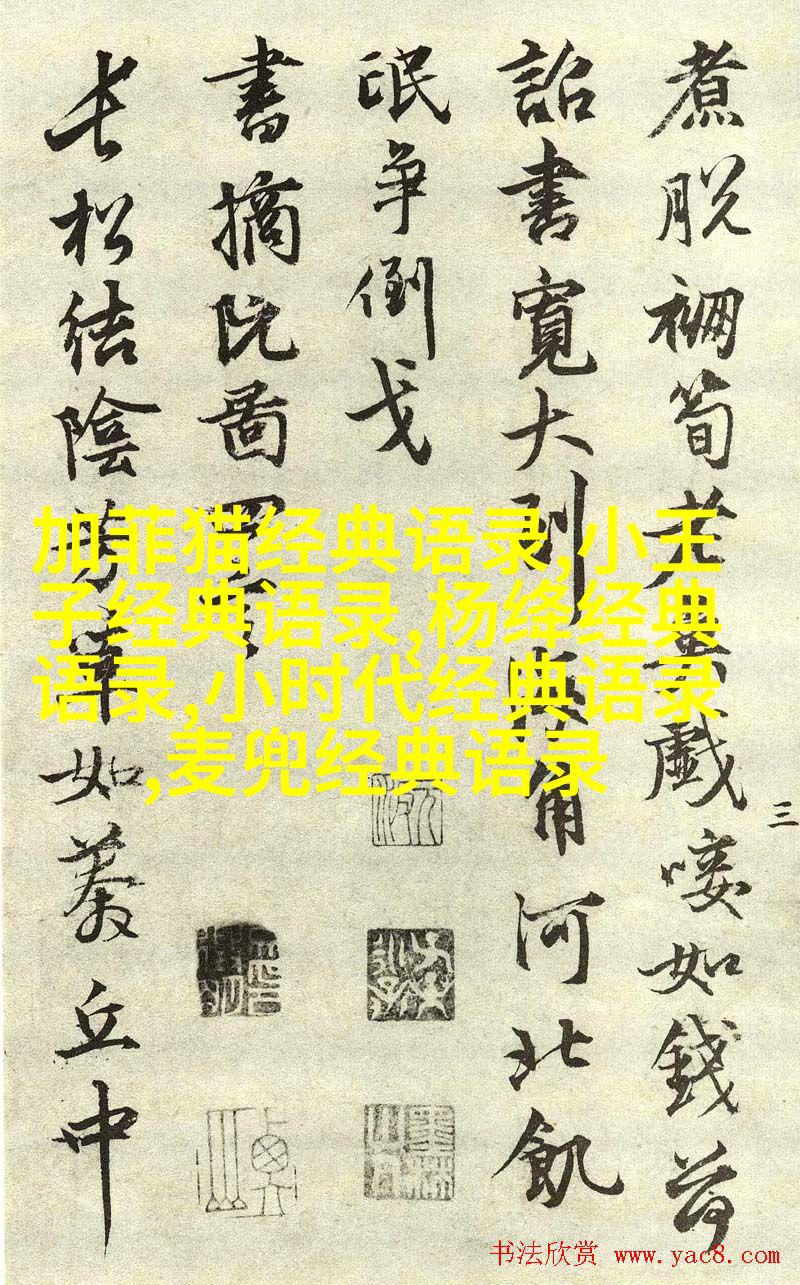 煮脱筍老戲如錢荷
詔書寬大到海角河北飢
氓争倒戈
書摘阮圖四言
長松結陰如丘中
三
加菲猫经典语录,小王
子经典语录,杨绛经典
语录,小时代经典语录
,麦兜经典语录
书法欣赏 www.yac8.com